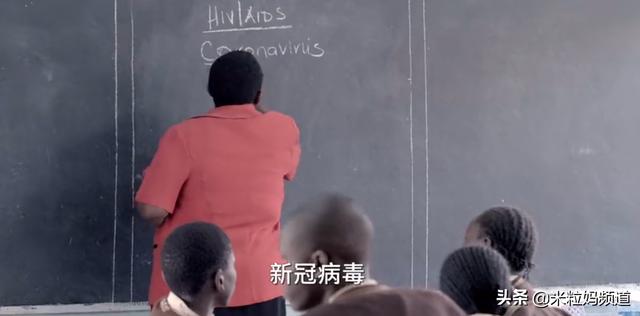 HIV/AIDS
Coronavirus
新冠病毒
头条 @米粒妈频道